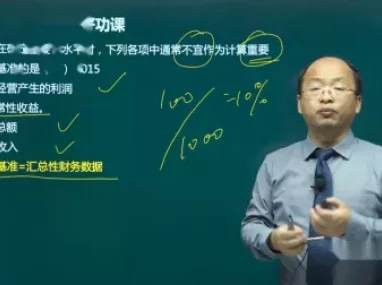 功课
水平时，下列各项中通常不宜作为计算重要
基准的是（ ）2015
经营产生的利润
常性收益。
总额
收入
基准=汇总性财务数据
100/1000=10%